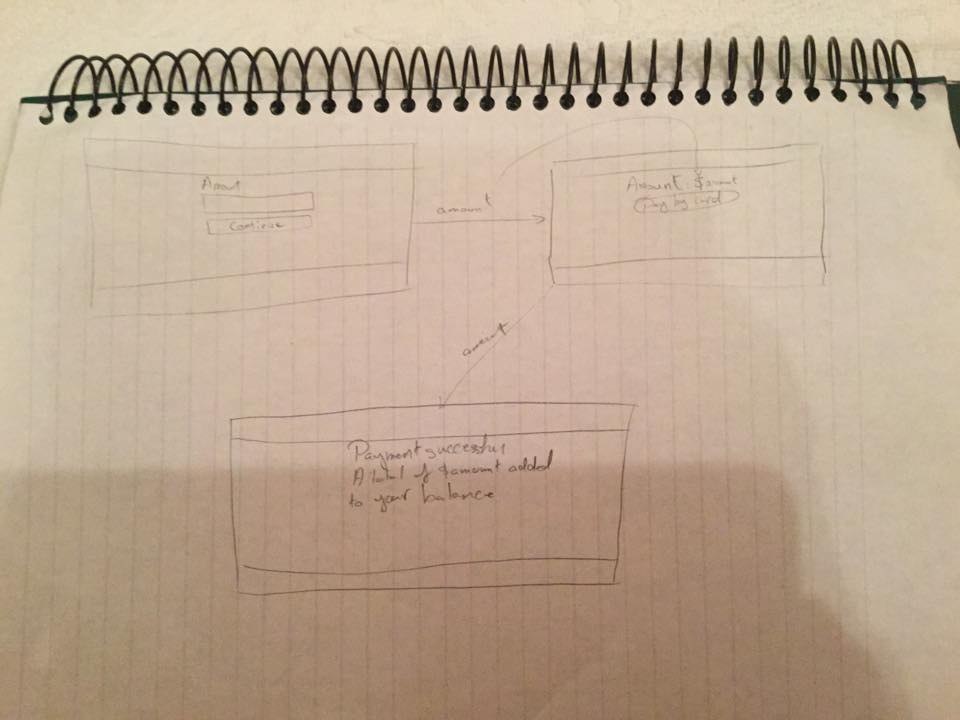 Amout
Continue
amount
Amount : $amount
Pay by card
amount
Payment successful
A total of $amount added
to your balance